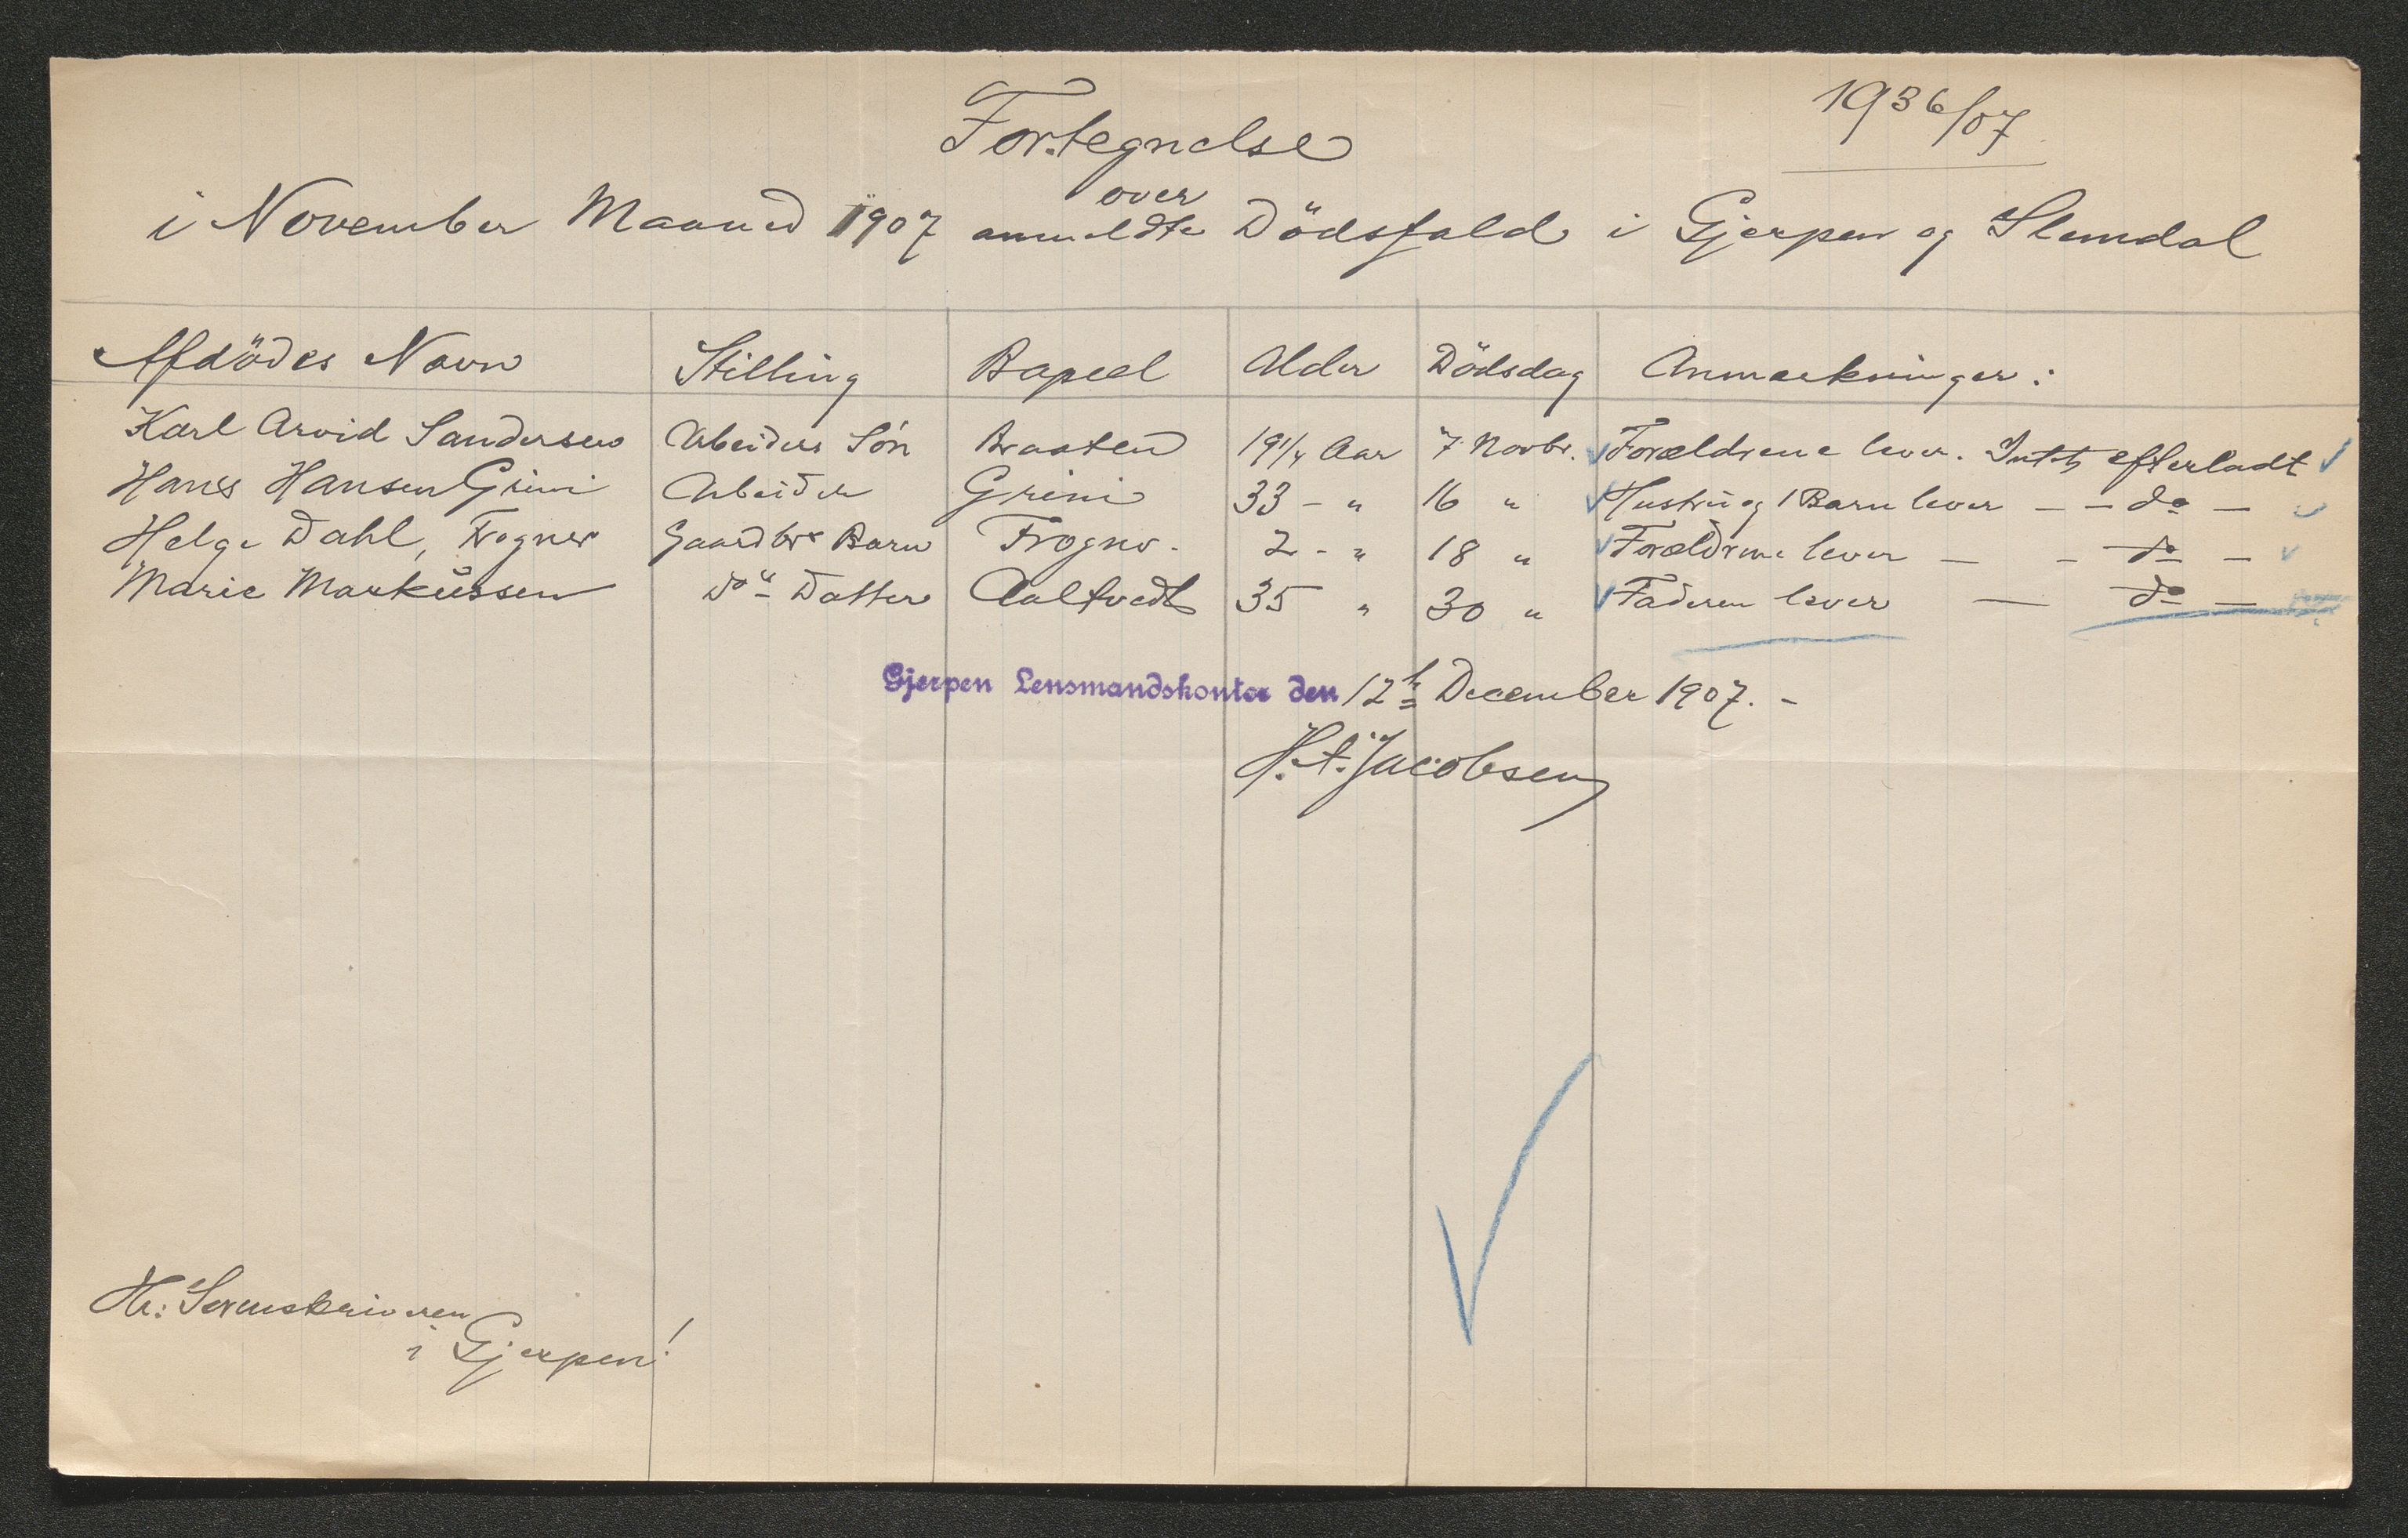 1936/07
Fortegnelse
over
i November Maaned 1907 anmeldte Dödsfald i Gjerpen og Slemdal
Afdödes Navn Stilling Bopæl Alder Dödsdag Anmærkninger:
Karl Arvid Sandersen Arbeiders Søn Braaten 19 1/4 Aar 7 Novbr. Forældrene lever. Intet efterladt
Hans Hansen Grini Arbeider Grini 33 - " 16 " Hustru og 1 Barn lever - - do -
Helge Dahl, Frogner Gaardbrs Barn Frogner. 2 - " 18 " Forældrene lever - - do -
Marie Markussen do Datter Aaltvedt 35 " 30 " Faderen lever - do -
Gjerpen Lensmandskontor den 12te December 1907. -
H. A. Jacobsen
Hr: Sorenskriveren
i Gjerpen!